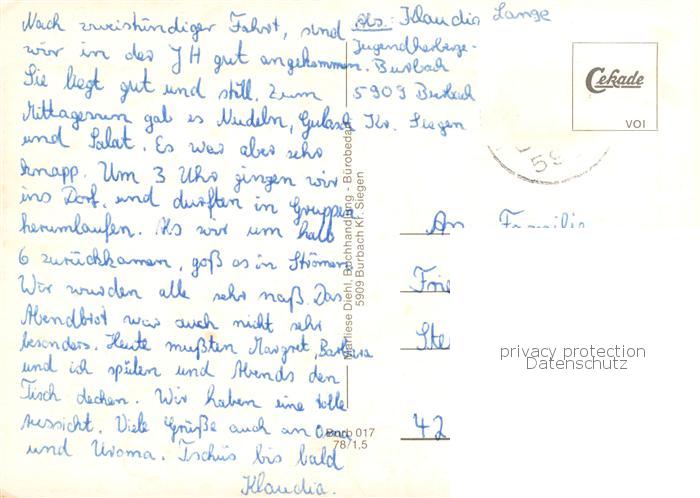 Nach zweistündiger Fahrt, sind
wir in der JH gut angekommen.
Sie liegt gut und still. Zum
Mittagessen gab es Nudeln, Gulasch
und Salat. Es war aber sehr
knapp. Um 3 Uhr gingen wir
ins Dorf, und durften in Gruppen
herumlaufen. Als wir um halb
6 zurückkamen, goß es in Strömen
Wir wurden alle sehr naß. Das
Abendbrot war auch nicht sehr
besonders. Heute mußten Margret, Barbara
und ich spülen und Abends den
Tisch decken. Wir haben eine tolle
Aussicht. Viele Grüße auch an Oma
und Uroma. Tschüs bis bald
Klaudia.
Abs: Klaudia Lange
Jugendherberge-
Burbach
5909 Burbach
Kr. Siegen
Cekade
VOI
59
Marliese Diehl, Buchhandlung - Bürobedarf
5909 Burbach Kr. Siegen
Burb 017
78/1,5
An Familie
Frie
Ste
42
privacy protection
Datenschutz